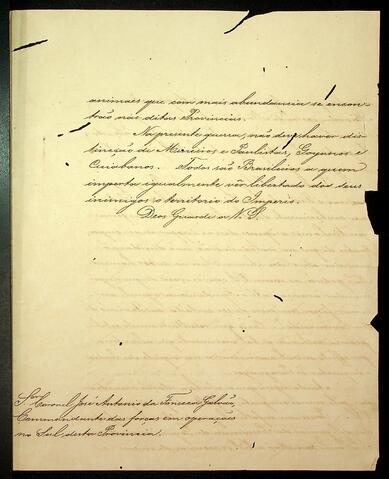 animaes que com mais abundancia se encon-
trão nas ditas Provincias.
Na presente guerra, não deve haver dis-
tincção de Mineiros e Paulistas, Goyanos e
Cuiabanos. Todos são Brasileiros a quem
importa igualmente vêr libertado dos seus
inimigos o territorio do Imperio.
Deos Guarde a V. S.
Snr. Coronel José Antonio da Fonseca Galvão,
Commandante das forças em operações
no Sul desta Provincia.